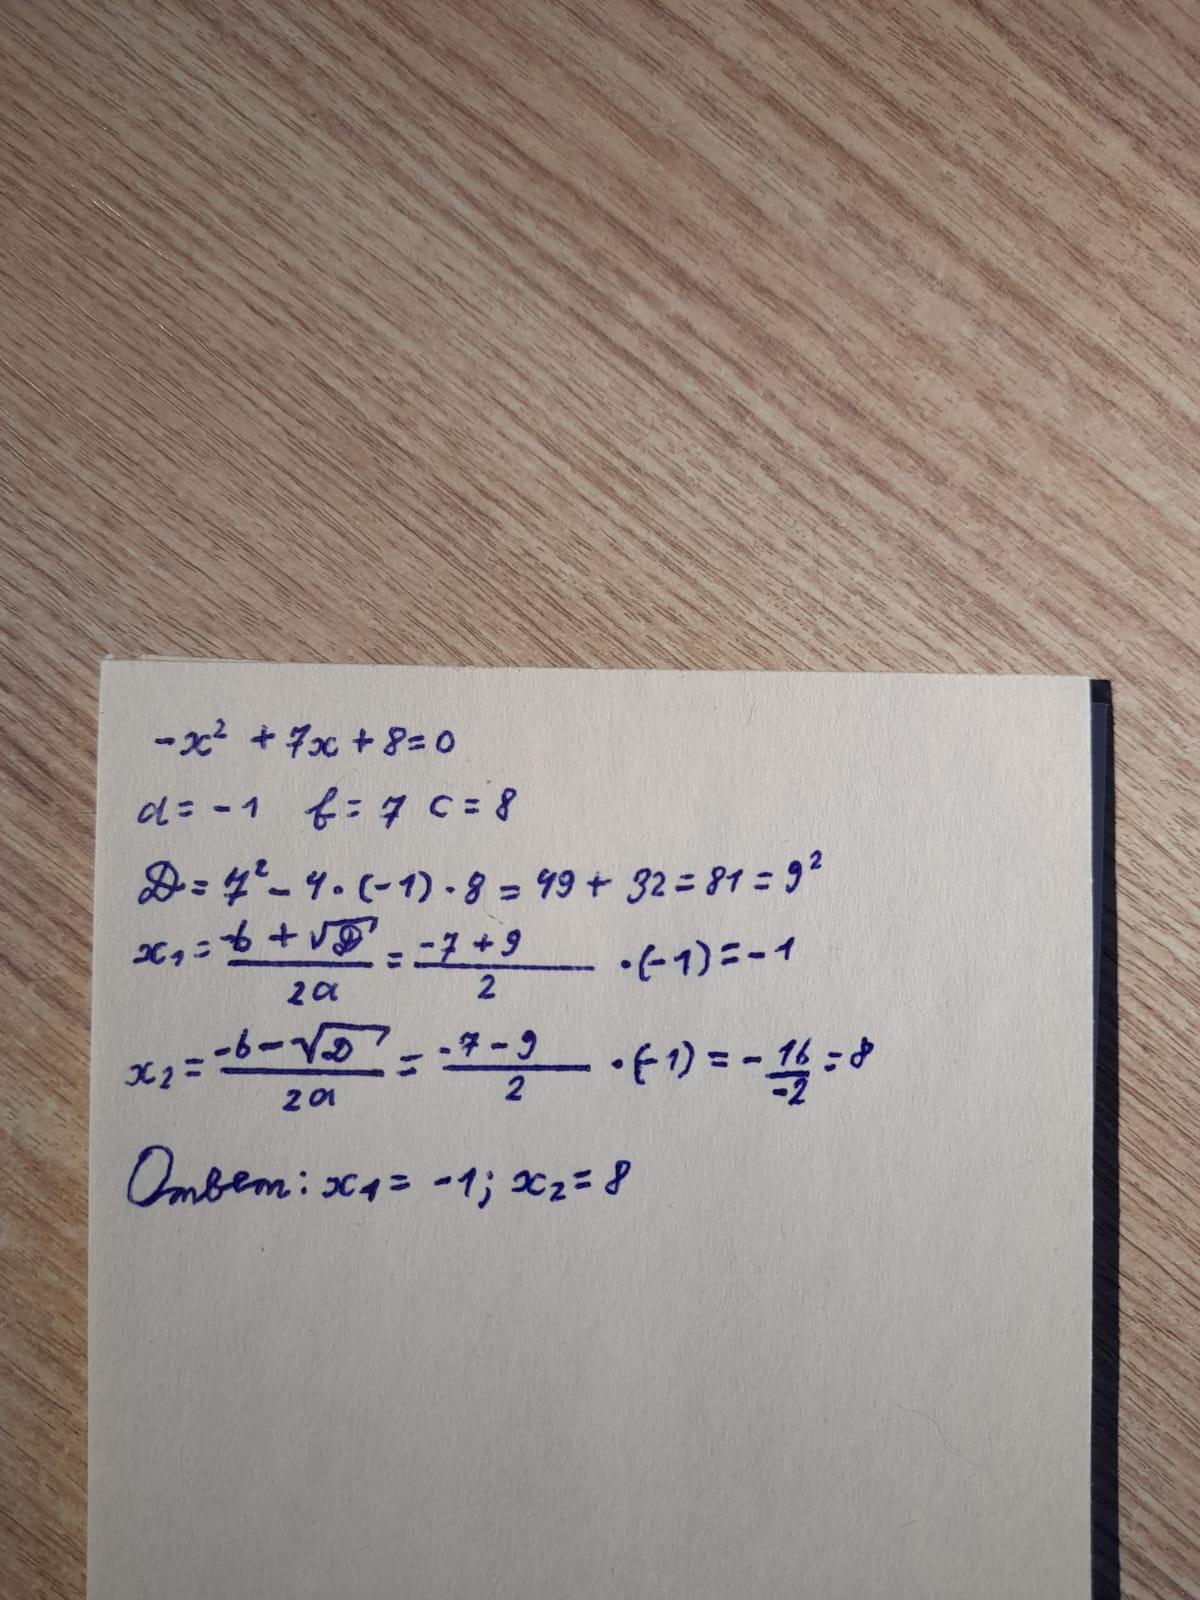 -x² + 7x + 8 = 0
a = -1 b = 7 c = 8
D = 7² - 4 · (-1) · 8 = 49 + 32 = 81 = 9²
x₁ = (-b + √D)/(2a) = (-7 + 9)/2 · (-1) = -1
x₂ = (-b - √D)/(2a) = (-7 - 9)/2 · (-1) = - 16/(-2) = 8
Ответ: x₁ = -1; x₂ = 8